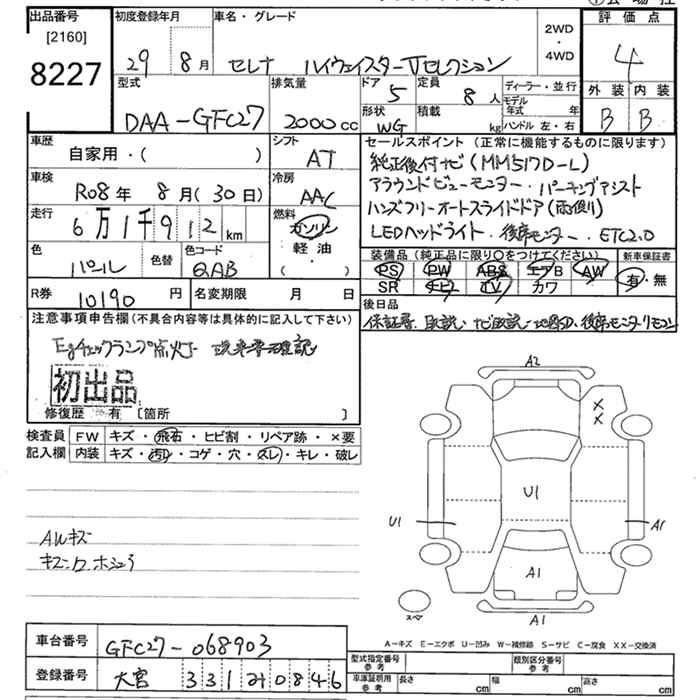 出品番号
[2160]
8227
初度登録年月
29 8月
車名・グレード
セレナ ハイウェイスターVセレクション
2WD
・
4WD
評価点
4
外装 内装
B B
型式
DAA-GFC27
排気量
2000cc
ドア
5
定員
8人
形状
WG
積載
kg
ディーラー・並行
モデル年式 年
ハンドル 左・右
車歴
自家用・( )
シフト
AT
車検
R08年 8月(30日)
冷房
AAC
走行
6万1千912km
燃料
ガソリン
軽油・
( )
色
パール
色替
色コード
QAB
R券
10190円
名変期限 月 日
セールスポイント(正常に機能するものに限ります)
純正後付ナビ(MM517D-L)
アラウンドビューモニター・パーキングアシスト
ハンズフリーオートスライドドア(両側)
LEDヘッドライト・後席モニター・ETC2.0
装備品(純正品に限り○をつけてください)
PS PW ABS エアB AW
SR ナビ TV カワ
新車保証書
有・無
後日品
保証書、取説、ナビ取説、地図SD、後席モニターリモコン
注意事項申告欄(不具合内容等は具体的に記入して下さい)
Egチェックランプ点灯 現車要確認
初出品
修復歴 有 [箇所 ]
検査員記入欄
FW キズ・飛石・ヒビ割・リペア跡・×要
内装 キズ・汚れ・コゲ・穴・スレ・キレ・破レ
A2
X
X
U1
U1
A1
A1
A1
スペア
AWキズ
A-キズ E-エクボ U-凹み W-補修跡 S-サビ C-腐食 XX-交換済
車台番号
GFC27-068903
登録番号
大宮 331 0846
型式指定番号
参考
類別区分番号
参考
車庫証明用
参考
長さ cm 幅 cm 高さ cm